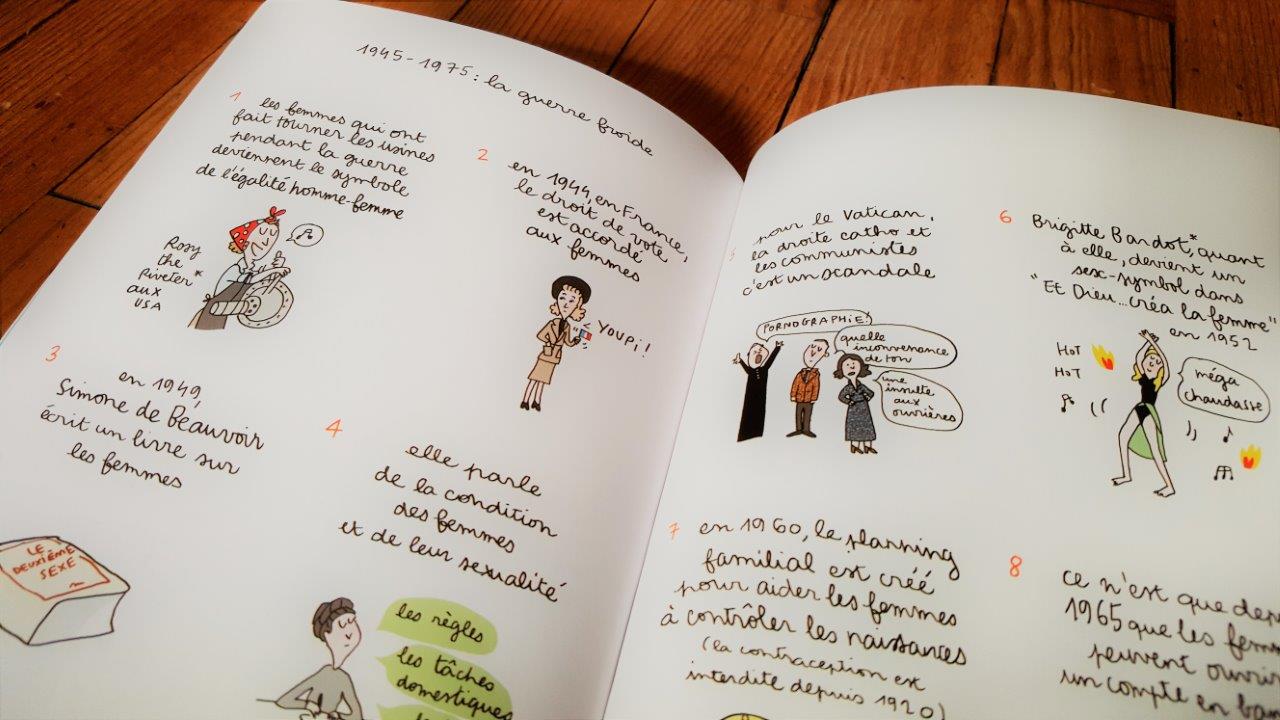 1945-1975: la guerre froide
1
les femmes qui ont
fait tourner les usines
pendant la guerre
deviennent le symbole
de l'égalité homme-femme
Rosy
the
Riveter*
aux
USA
2
en 1944, en France,
le droit de vote
est accordé
aux femmes
YOUPI!
3
en 1949,
Simone de Beauvoir
écrit un livre sur
les femmes
LE
DEUXIÈME
SEXE
4
elle parle
de la condition
des femmes
et de leur sexualité
les règles
les tâches
domestiques
5
pour le Vatican,
la droite catho et
les communistes
c'est un scandale
PORNOGRAPHIE!
quelle
inconvenance
de ton
une
insulte
aux
ouvrières
6
Brigitte Bardot*, quant
à elle, devient un
sex-symbol dans
"Et Dieu...créa la femme"
en 1952
HOT
HOT
méga
chaudasse
7
en 1960, le planning
familial est créé
pour aider les femmes
à contrôler les naissances
(la contraception est
interdite depuis 1920)
8
ce n'est que dep
1965 que les fem
peuvent ouvrir
un compte en ban